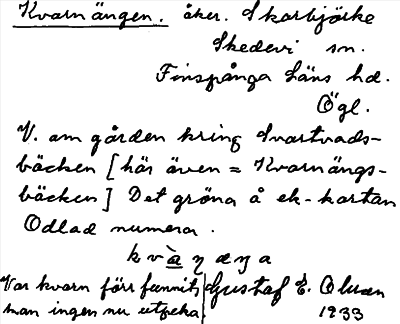 Kvarnängen. åker. Skarbjörke
Skedevi sn.
Finspånga Läns hd.
Ögl.
V. om gården kring Svartvads-
bäcken [här även = Kvarnängs-
bäcken] Det gröna å ek-kartan
Odlad numera.
kvàŋæŋa
Var kvarn förr funnits
man ingen nu utpeka.
Gustaf E. Olsson
1933